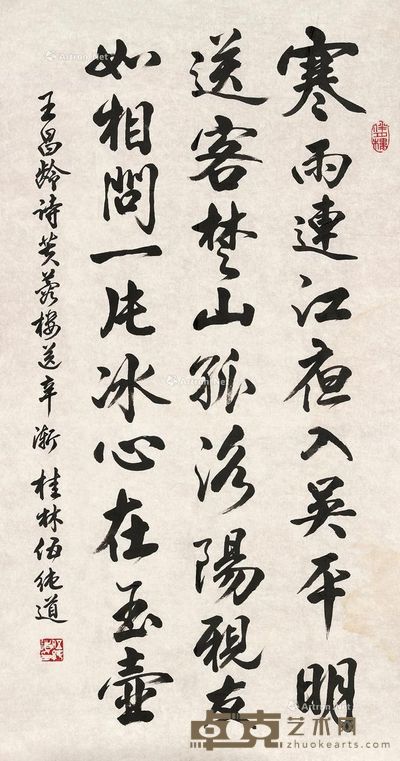 寒雨連江夜入吴平明
送客楚山孤洛陽親友
如相問一片冰心在玉壺
王昌齡詩芙蓉樓送辛漸 桂林伍純道
卓克艺术网
zhuokearts.com